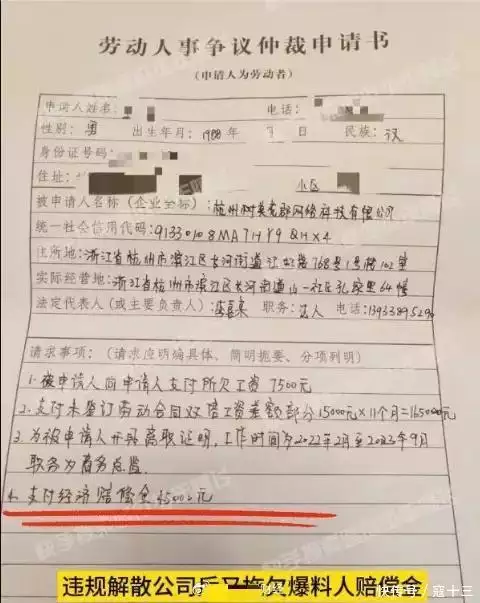 劳动人事争议仲裁申请书
(申请人为劳动者)
申请人姓名: 电话:
性别: 男 出生年月: 1988年 月 日 民族: 汉
身份证号码:
住址: 小区
被申请人名称(企业全称): 杭州 网络科技有限公司
统一社会信用代码: 91330108MA7HY9QHX4
住所地: 浙江省杭州市滨江区长河街道江虹路768号1号楼102室
实际经营地: 浙江省杭州市滨江区长河街道山一社区孔家里64幢
法定代表人(或主要负责人): 职务: 法人 电话:
请求事项: (请求应明确具体、简明扼要、分项列明)
1. 被申请人向申请人支付所欠工资 7500元
2. 支付未签订劳动合同双倍工资差额部分15000元×11个月=165000元
3. 为被申请人开具离职证明,工作时间为2022年2月至2023年9月
职务为商务总监.
4. 支付经济赔偿金45000元
违规解散公司后又拖欠爆料人赔偿金
快传号/寇十三